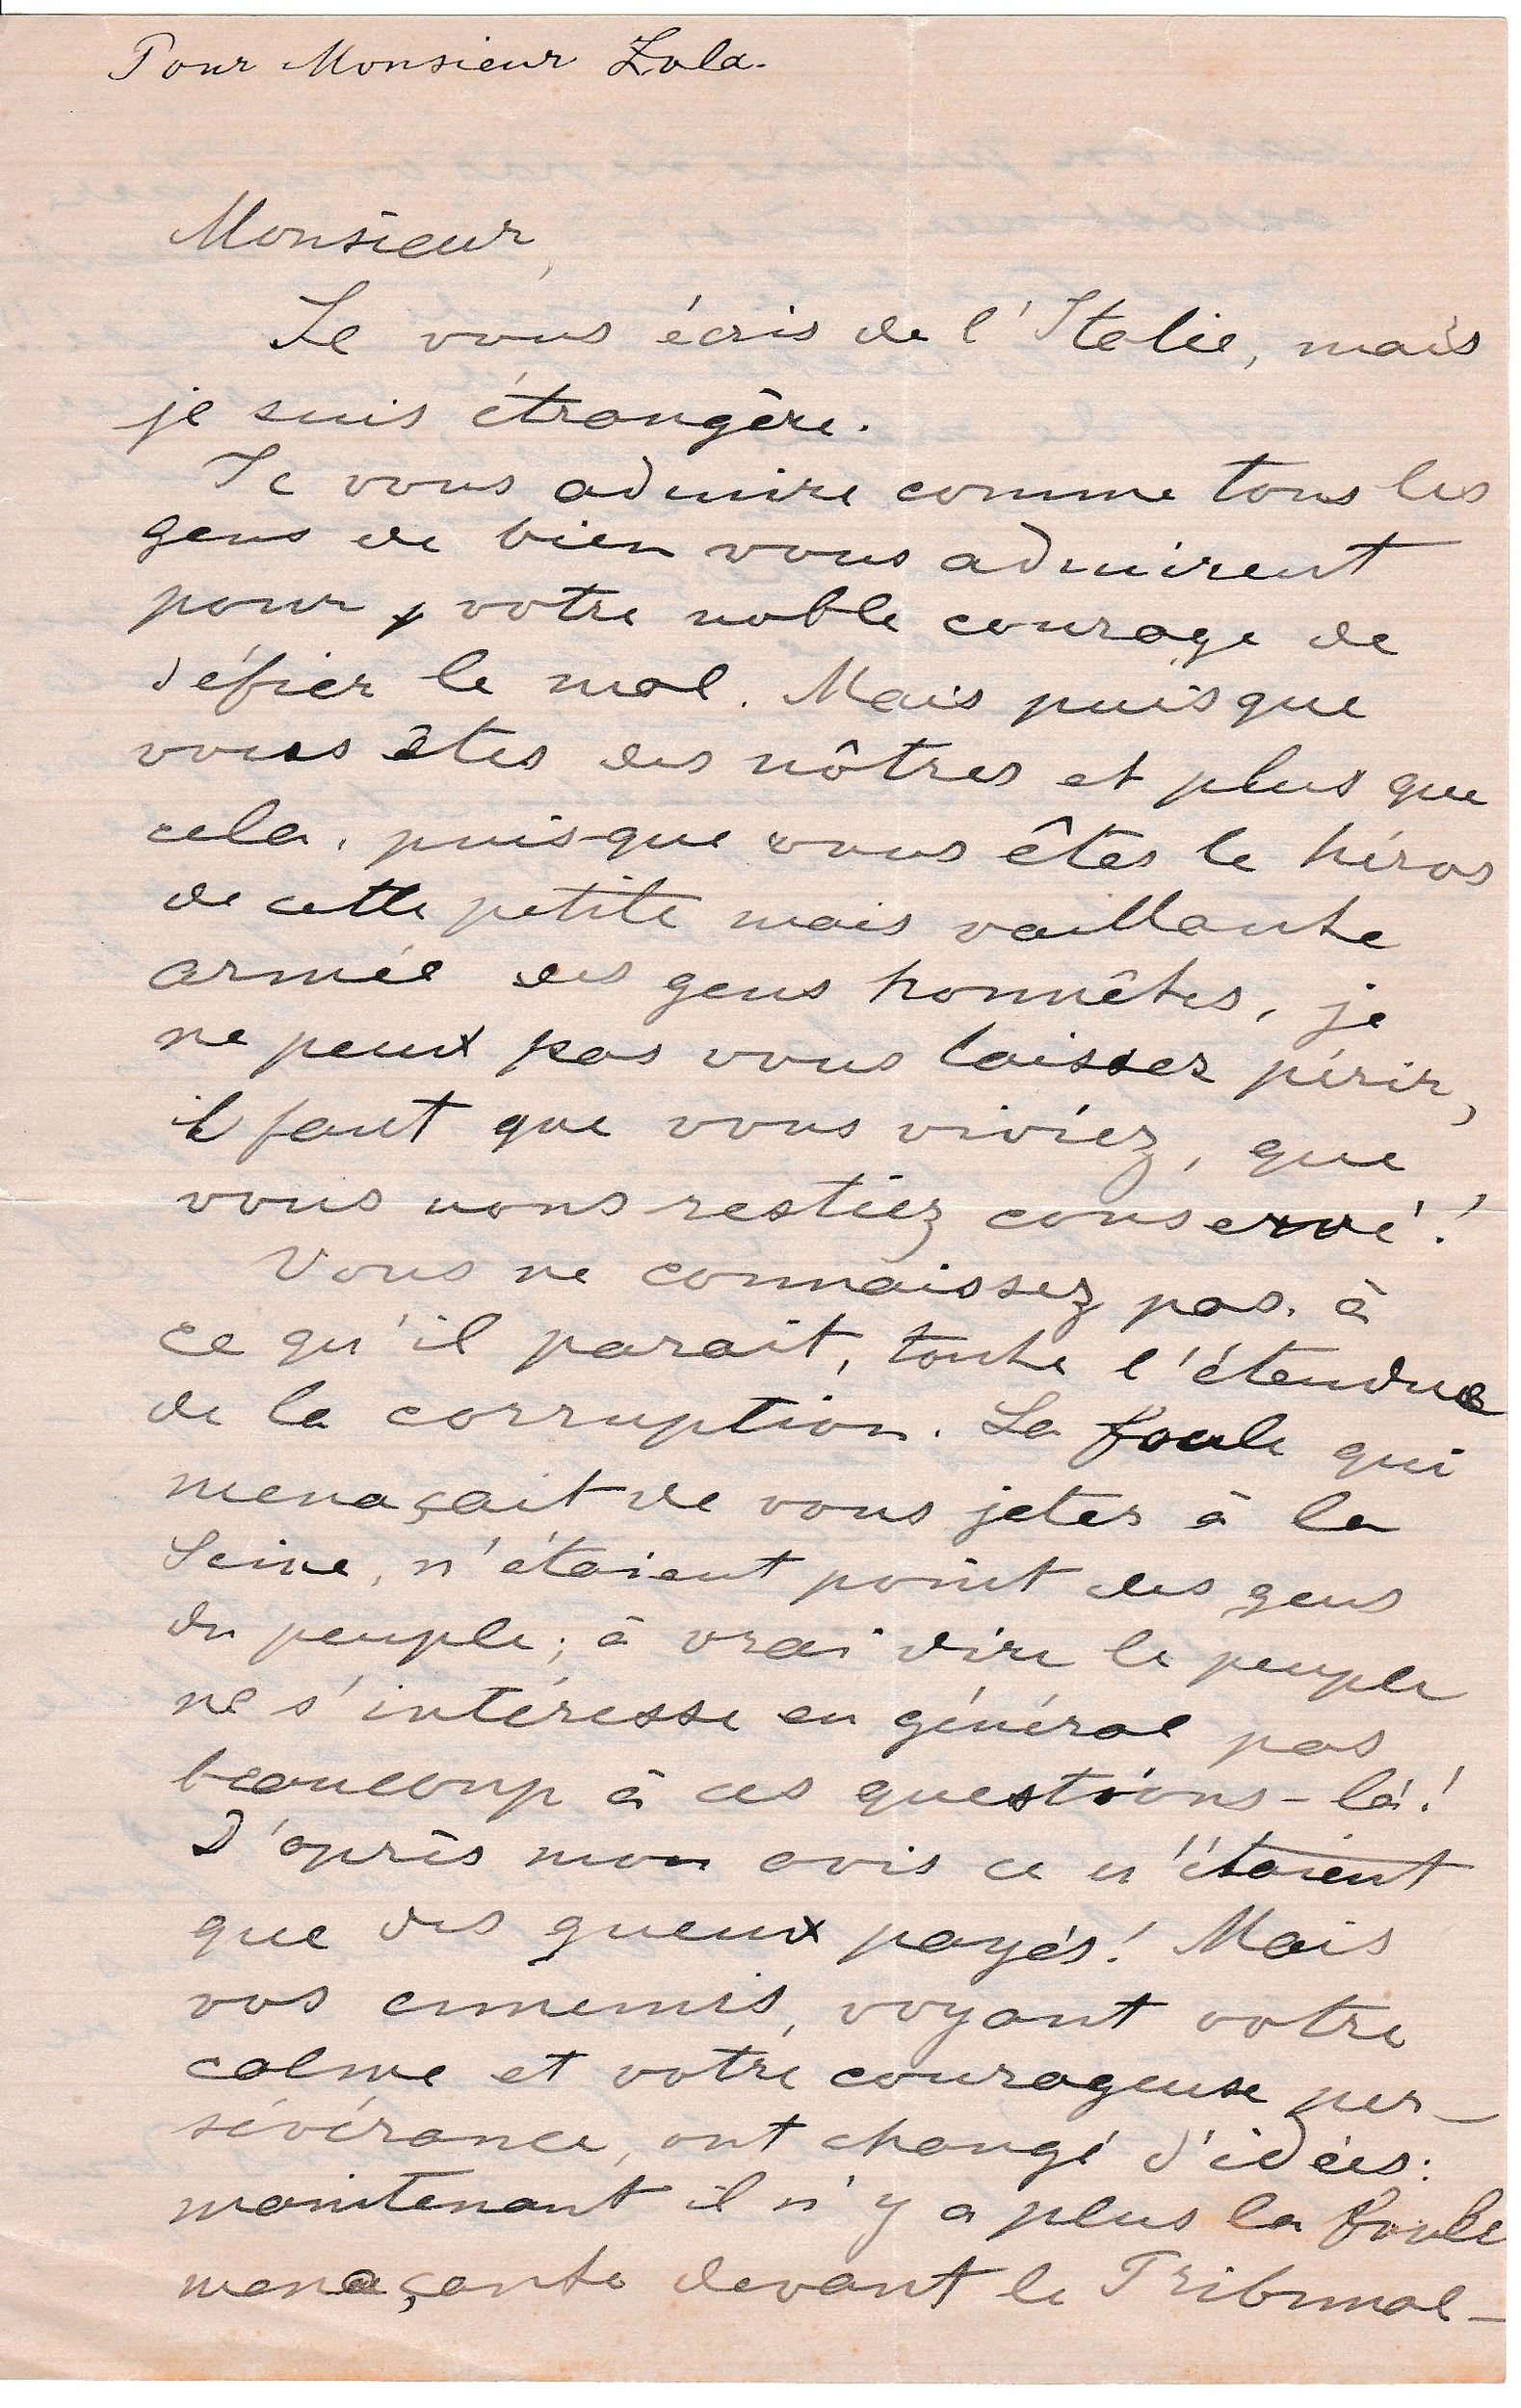 Pour Monsieur Zola.
Monsieur,
Je vous écris de l'Italie, mais
je suis étrangère.
Je vous admire comme tous les
gens de bien vous admirent
pour votre noble courage de
défier le mal. Mais puisque
vous êtes des nôtres et plus que
cela, puisque vous êtes le héros
de cette petite mais vaillante
armée des gens honnêtes, je
ne peux pas vous laisser périr,
il faut que vous viviez, que
vous nous restiez conservé!
Vous ne connaissez pas, à
ce qu'il parait, toute l'étendue
de la corruption. La foule qui
menaçait de vous jeter à la
Seine, n'étaient point des gens
du peuple; à vrai dire le peuple
ne s'intéresse en général pas
beaucoup à ces questions-là!
D'après mon avis ce n'étaient
que des gueux payés! Mais
vos ennemis, voyant votre
calme et votre courageuse per-
sévérance, ont changé d'idées:
maintenant il n'y a plus la foule
menaçante devant le Tribunal-